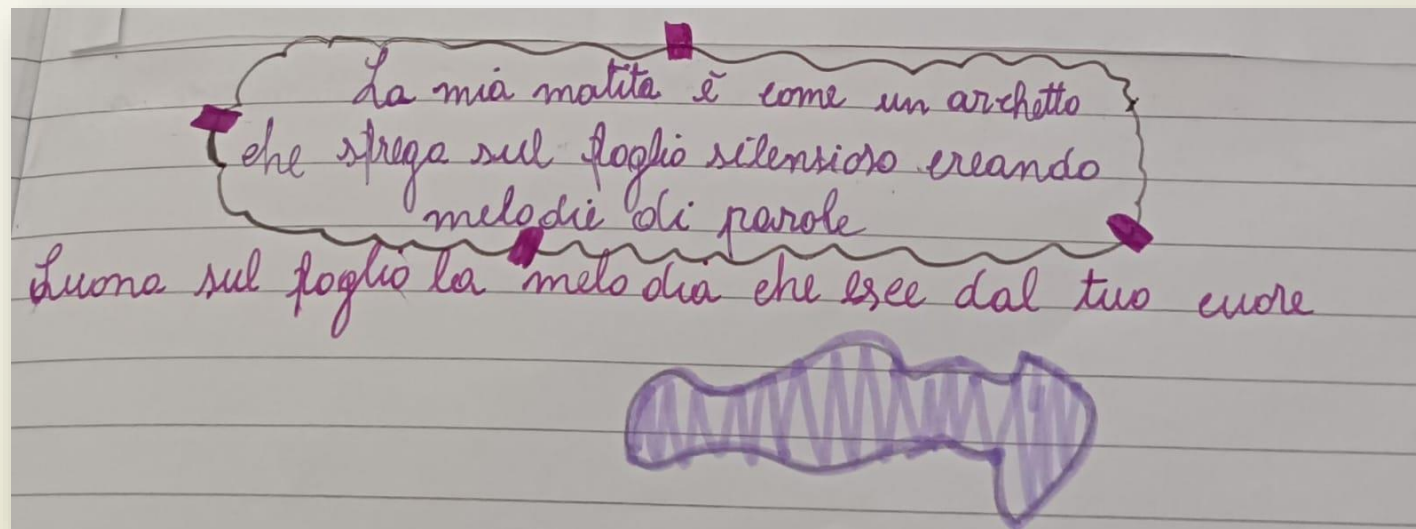 La mia matita è come un archetto
che sfrega sul foglio silenzioso creando
melodie di parole
Suona sul foglio la melodia che esce dal tuo cuore